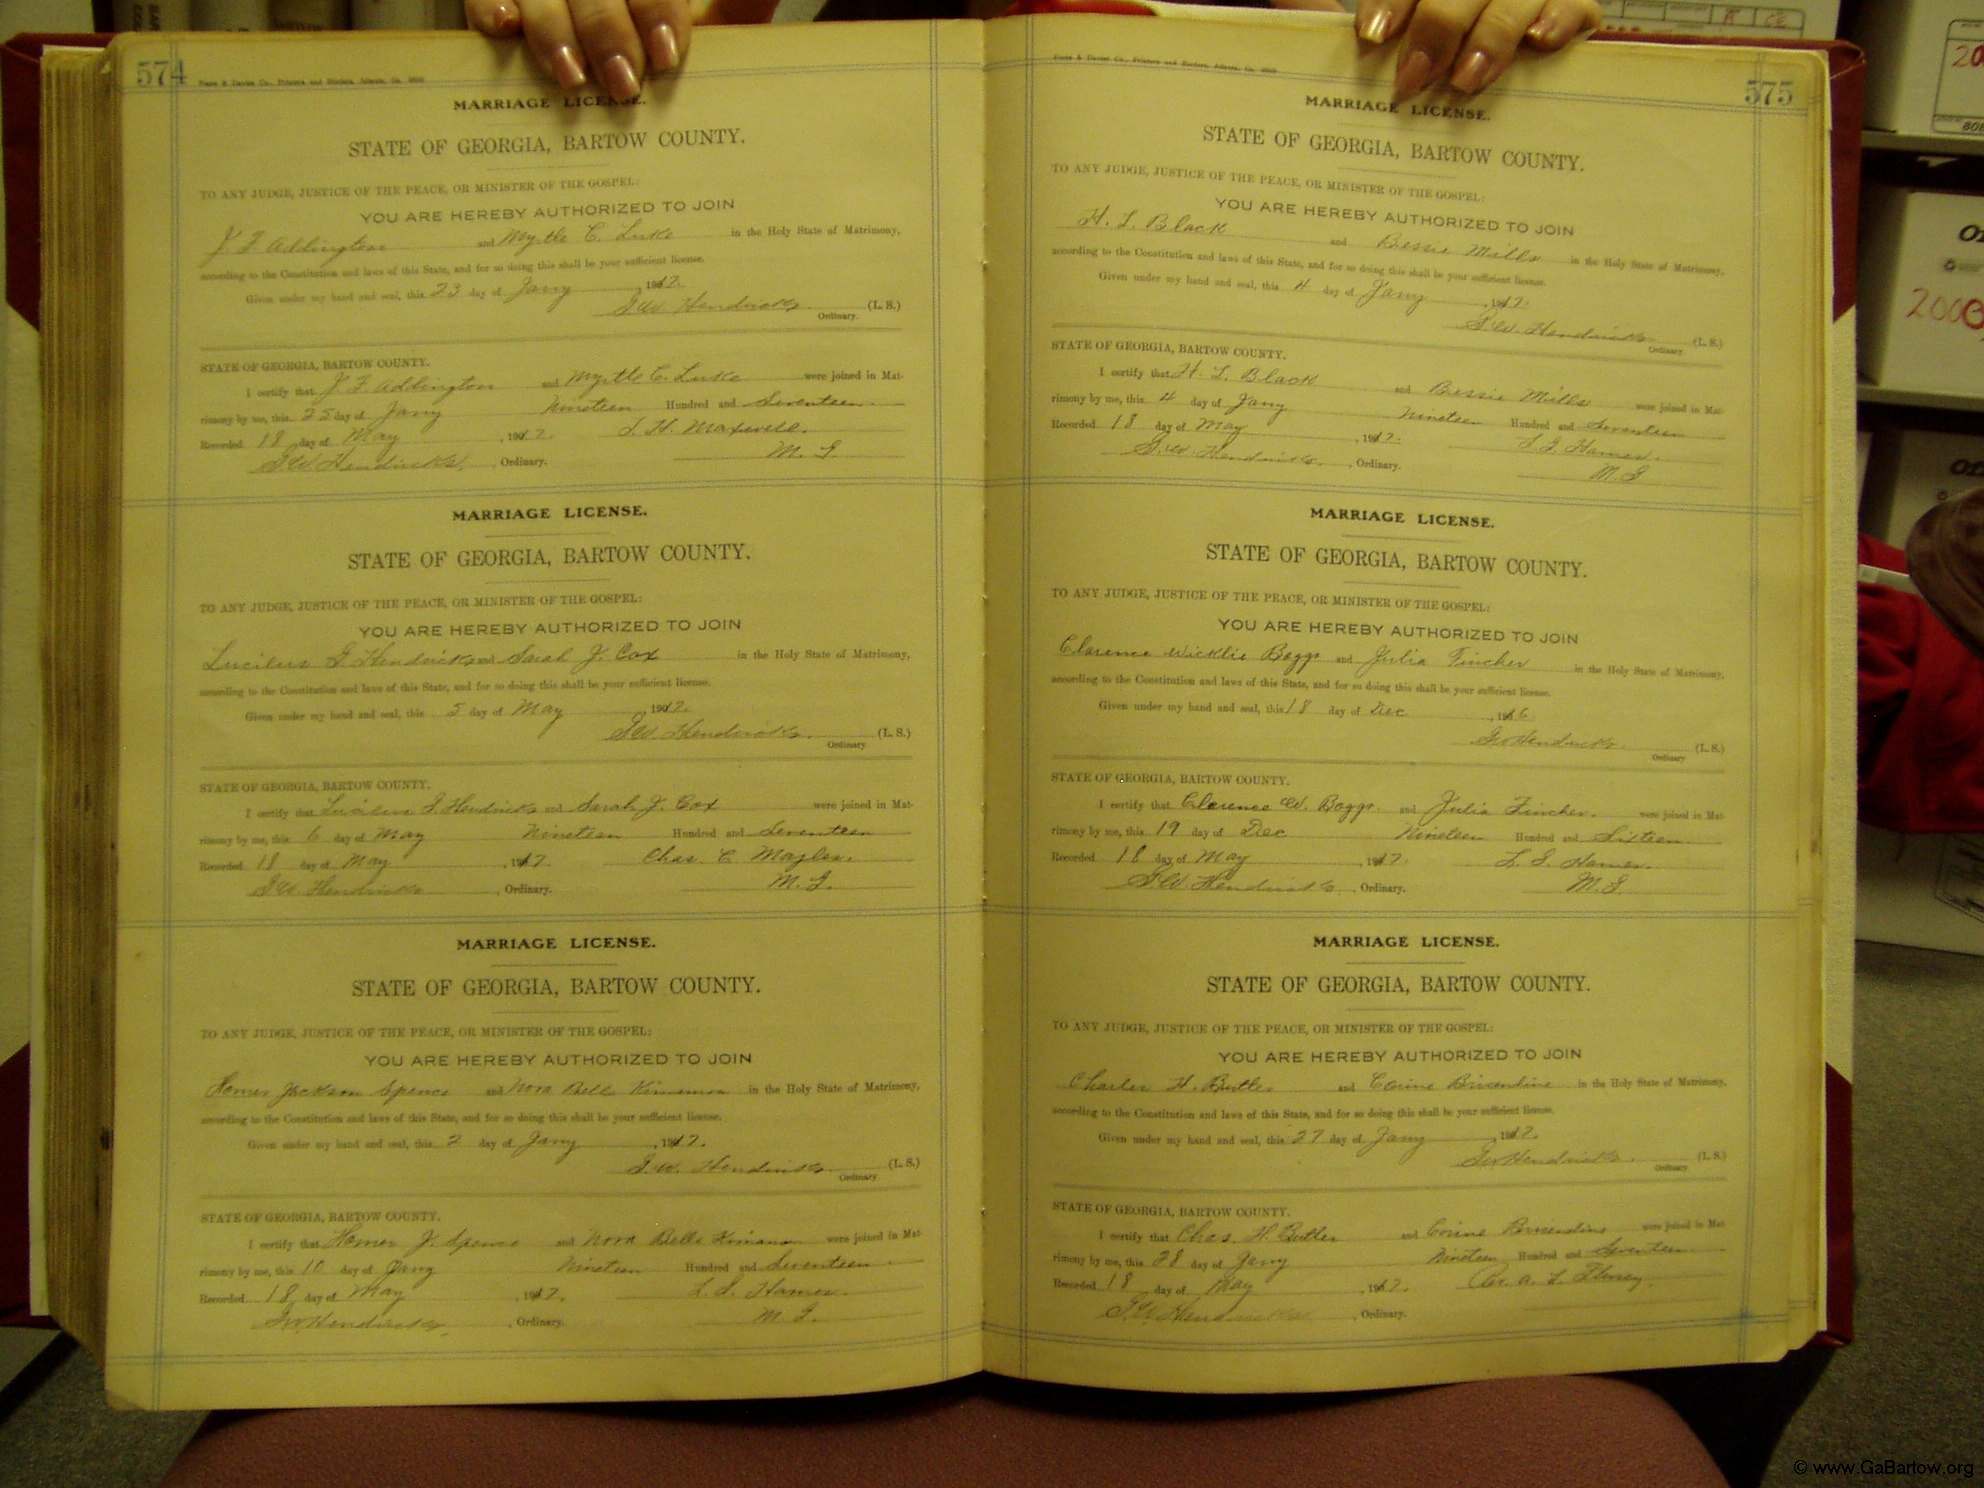 574
MARRIAGE LICENSE.
STATE OF GEORGIA, BARTOW COUNTY.
TO ANY JUDGE, JUSTICE OF THE PEACE, OR MINISTER OF THE GOSPEL:
YOU ARE HEREBY AUTHORIZED TO JOIN
J F Addington and Myrtle C. Luke in the Holy State of Matrimony,
according to the Constitution and laws of this State, and for so doing this shall be your sufficient license.
Given under my hand and seal, this 23 day of Jany, 1917.
G.W. Hendricks (L. S.)
Ordinary.
STATE OF GEORGIA, BARTOW COUNTY.
I certify that J F Addington and Myrtle C. Luke were joined in Mat-
rimony by me, this 25 day of Jany Nineteen Hundred and Seventeen.
Recorded 18 day of May, 1917. J. H. Maxwell.
G.W. Hendricks, Ordinary. M. G.
MARRIAGE LICENSE.
STATE OF GEORGIA, BARTOW COUNTY.
TO ANY JUDGE, JUSTICE OF THE PEACE, OR MINISTER OF THE GOSPEL:
YOU ARE HEREBY AUTHORIZED TO JOIN
Lucileus G Hendricks and Sarah J. Cox in the Holy State of Matrimony,
according to the Constitution and laws of this State, and for so doing this shall be your sufficient license.
Given under my hand and seal, this 5 day of May, 1917.
G.W. Hendricks. (L. S.)
Ordinary
STATE OF GEORGIA, BARTOW COUNTY.
I certify that Lucileus G Hendricks and Sarah J. Cox were joined in Mat-
rimony by me, this 6 day of May Nineteen Hundred and Seventeen
Recorded 18 day of May, 1917. Chas. C
G.W. Hendricks, Ordinary. M. G.
MARRIAGE LICENSE.
STATE OF GEORGIA, BARTOW COUNTY.
TO ANY JUDGE, JUSTICE OF THE PEACE, OR MINISTER OF THE GOSPEL:
YOU ARE HEREBY AUTHORIZED TO JOIN
Homer Jackson Spence and Nora Bell in the Holy State of Matrimony,
according to the Constitution and laws of this State, and for so doing this shall be your sufficient license.
Given under my hand and seal, this 2 day of Jany, 1917.
G.W. Hendricks (L. S.)
Ordinary.
STATE OF GEORGIA, BARTOW COUNTY.
I certify that Homer J. Spence and Nora Belle were joined in Mat-
rimony by me, this 10 day of Jany Nineteen Hundred and Seventeen.
Recorded 18 day of May, 1917. Hamer.
G.W. Hendricks, Ordinary. M. G.
575
MARRIAGE LICENSE.
STATE OF GEORGIA, BARTOW COUNTY.
TO ANY JUDGE, JUSTICE OF THE PEACE, OR MINISTER OF THE GOSPEL:
YOU ARE HEREBY AUTHORIZED TO JOIN
H. L. Black and Bessie Mills in the Holy State of Matrimony,
according to the Constitution and laws of this State, and for so doing this shall be your sufficient license.
Given under my hand and seal, this 4 day of Jany, 1917.
G.W. Hendricks (L. S.)
Ordinary.
STATE OF GEORGIA, BARTOW COUNTY.
I certify that H. L. Black and Bessie Mills were joined in Mat-
rimony by me, this 4 day of Jany Nineteen Hundred and Seventeen
Recorded 18 day of May, 1917. Hamer.
G.W. Hendricks, Ordinary. M. G
MARRIAGE LICENSE.
STATE OF GEORGIA, BARTOW COUNTY.
TO ANY JUDGE, JUSTICE OF THE PEACE, OR MINISTER OF THE GOSPEL:
YOU ARE HEREBY AUTHORIZED TO JOIN
Clarence Wicklie Boggs and Julia Fincher in the Holy State of Matrimony,
according to the Constitution and laws of this State, and for so doing this shall be your sufficient license.
Given under my hand and seal, this 18 day of Dec, 1916
G.W. Hendricks. (L. S.)
Ordinary
STATE OF GEORGIA, BARTOW COUNTY.
I certify that Clarence W. Boggs. and Julia Fincher. were joined in Mat-
rimony by me, this 19 day of Dec Nineteen Hundred and Sixteen.
Recorded 18 day of May, 1917. Hamer.
G.W. Hendricks, Ordinary. M. G.
MARRIAGE LICENSE.
STATE OF GEORGIA, BARTOW COUNTY.
TO ANY JUDGE, JUSTICE OF THE PEACE, OR MINISTER OF THE GOSPEL:
YOU ARE HEREBY AUTHORIZED TO JOIN
Charles H. Butler and Corine Brisendine in the Holy State of Matrimony,
according to the Constitution and laws of this State, and for so doing this shall be your sufficient license.
Given under my hand and seal, this 27 day of Jany, 1917.
G.W. Hendricks. (L. S.)
Ordinary
STATE OF GEORGIA, BARTOW COUNTY.
I certify that Chas. H. Butler and Corine Brisendine were joined in Mat-
rimony by me, this 28 day of Jany Nineteen Hundred and Seventeen
Recorded 18 day of May, 1917. Rev. A. L.
G.W. Hendricks, Ordinary.
© www.GaBartow.org